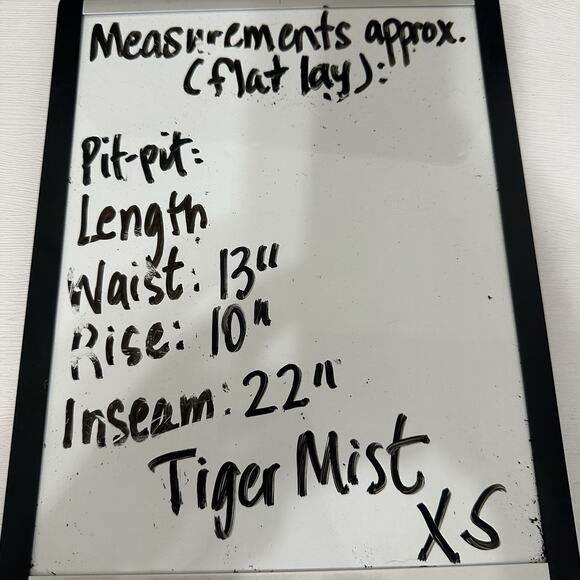 Measurements approx.
(flat lay):
Pit-pit:
Length
Waist: 13"
Rise: 10"
Inseam: 22"
Tiger Mist
XS